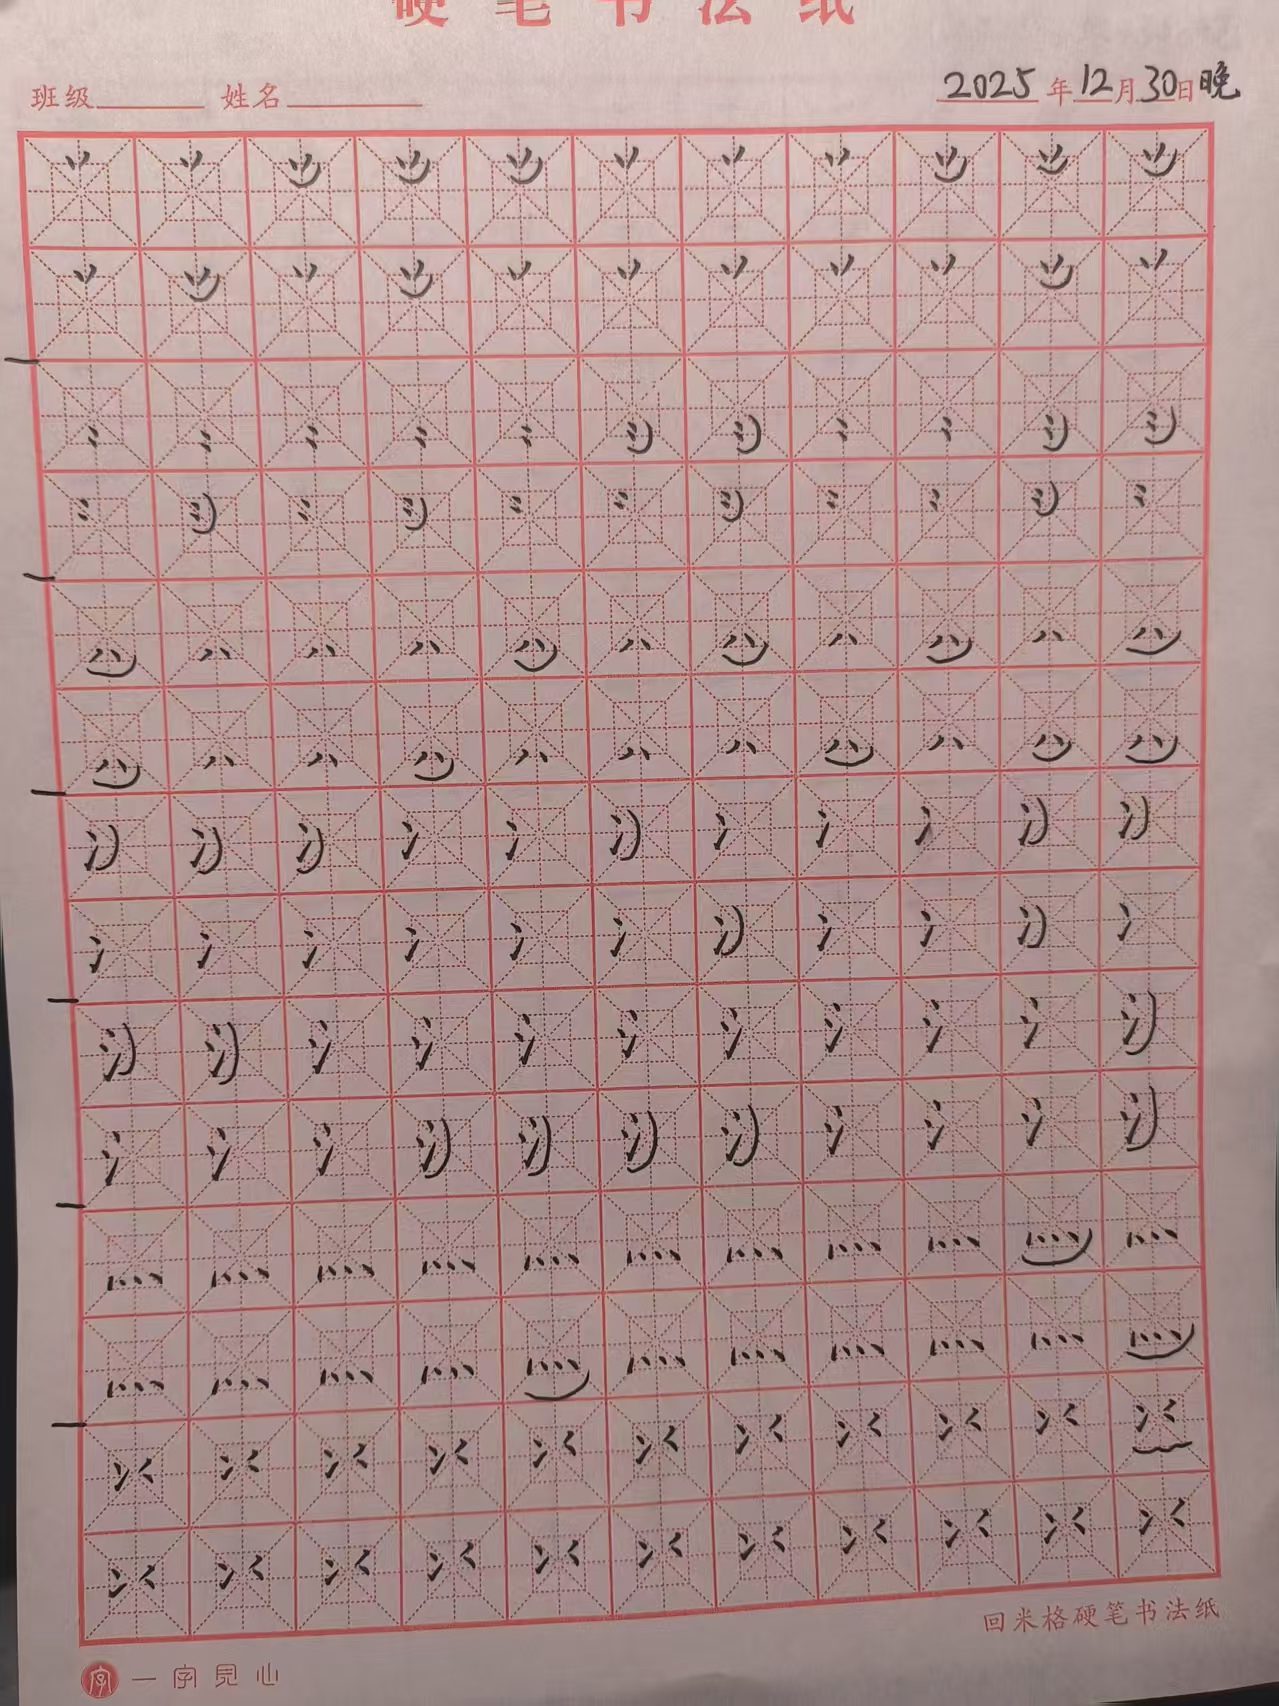 硬笔书法纸
班级 姓名 2025年12月30日晚
回米格硬笔书法纸
字 一字見心